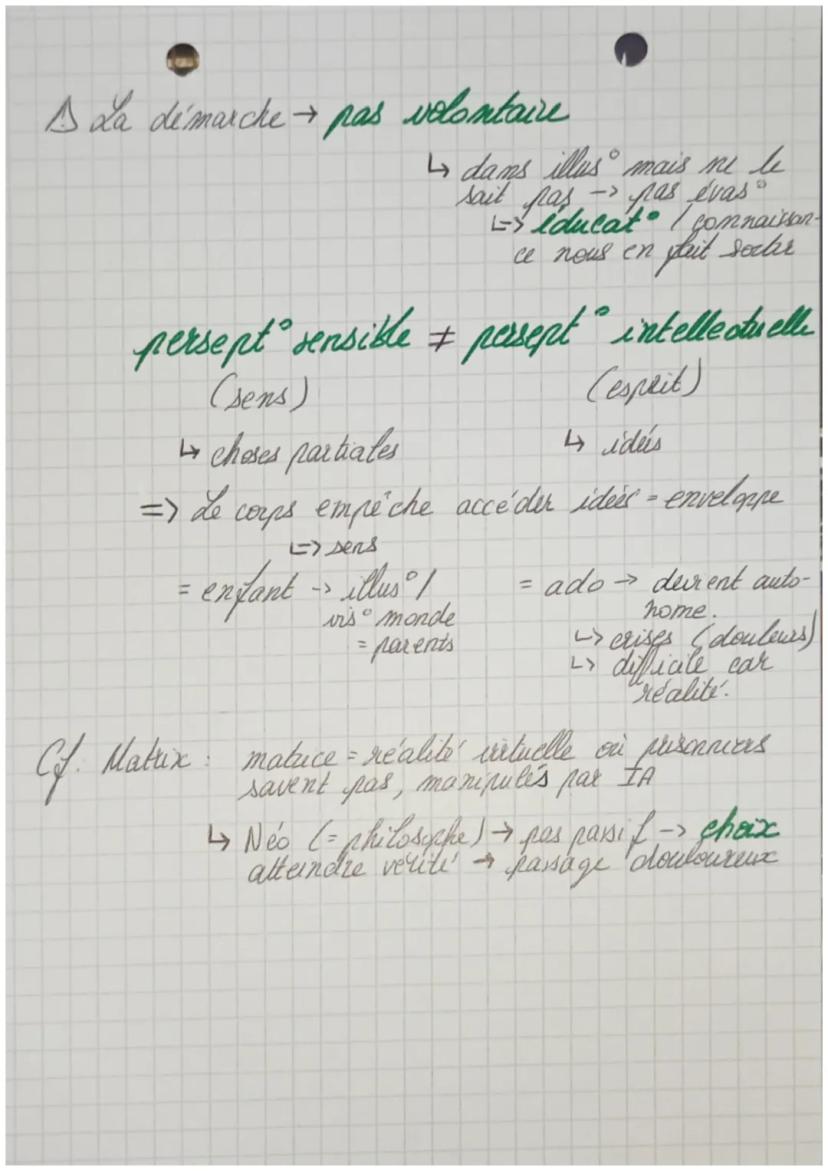 ⚠ La démarche → pas volontaire
↳ dans illus° mais ne le
sait pas -> pas évas°
↳ éducat° / connaissan-
ce nous en fait sortir
persept° sensible ≠ persept° intellectuelle
(sens) (esprit)
↳ choses partiales ↳ idées
=> Le corps empêche accéder idées = enveloppe
↳ sens
= enfant -> illus° / = ado → devient auto-
vis° monde nome.
= parents ↳ crises (douleurs)
↳ difficile car
réalité.
Cf. Matrix : matrice = réalité virtuelle où prisonniers
savent pas, manipulés par IA
↳ Néo (= philosophe) → pas passif -> choix
atteindre vérité → passage douloureux